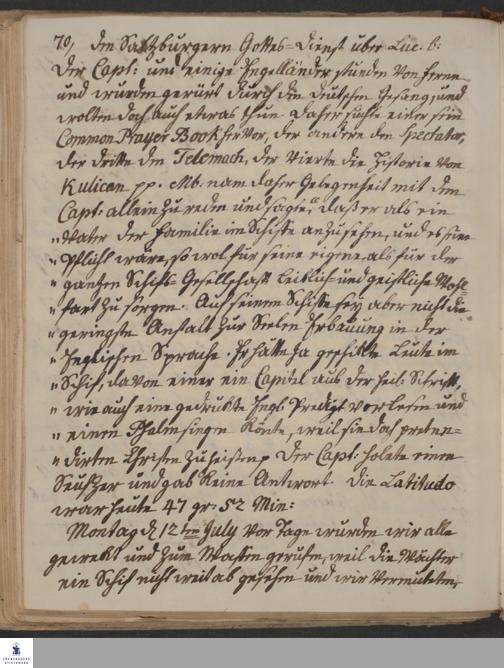 70, den Saltzburgern Gottes-Dienst über Luc. 6:
Der Capt: und einige Engelländer stunden von ferne
und wurden gerürt durch den deutschen Gesang, und
wolten doch auch etwas thun. Daher suchte einer sein
Common Prayer Book hervor, der andere den Spectator,
der dritte den Telemach, der vierte die Historie von
Kulican pp. Mb. nam daher Gelegenheit mit dem
Capt: allein zu reden und sagte, „daß er als ein
„Vater der Familie im Schiffe anzusehen, und es seine
„Pflicht wäre, so wol für seine eigene als für der
„gantzen Schifs-Gesellschaft leiblich- und geistliche Wohl
„fart zu sorgen. Auf seinem Schiffe sey aber nicht die
„geringste Anstalt zur Seelen Erbauung in der
„Englischen Sprache. Er hätte ja geschikte Leute im
„Schif, davon einer ein Capitel aus der heil: Schrift,
„wie auch eine gedrukte Engl: Predigt vorlesen und
„einen Psalm singen könte, weil sie doch preten-
„dirten Christen zu heissen. Der Capt: holete einen
Seufzer und gab keine Antwort. Die Latitudo
war heute 47 gr: 52 Min:
Montag d 12ten July vor Tage wurden wir alle
gewekt und zum Waffen gerufen, weil die Wächter
ein Schif nicht weit ab gesehen und wir vermuteten,
FRANCKESCHE
STIFTUNGEN